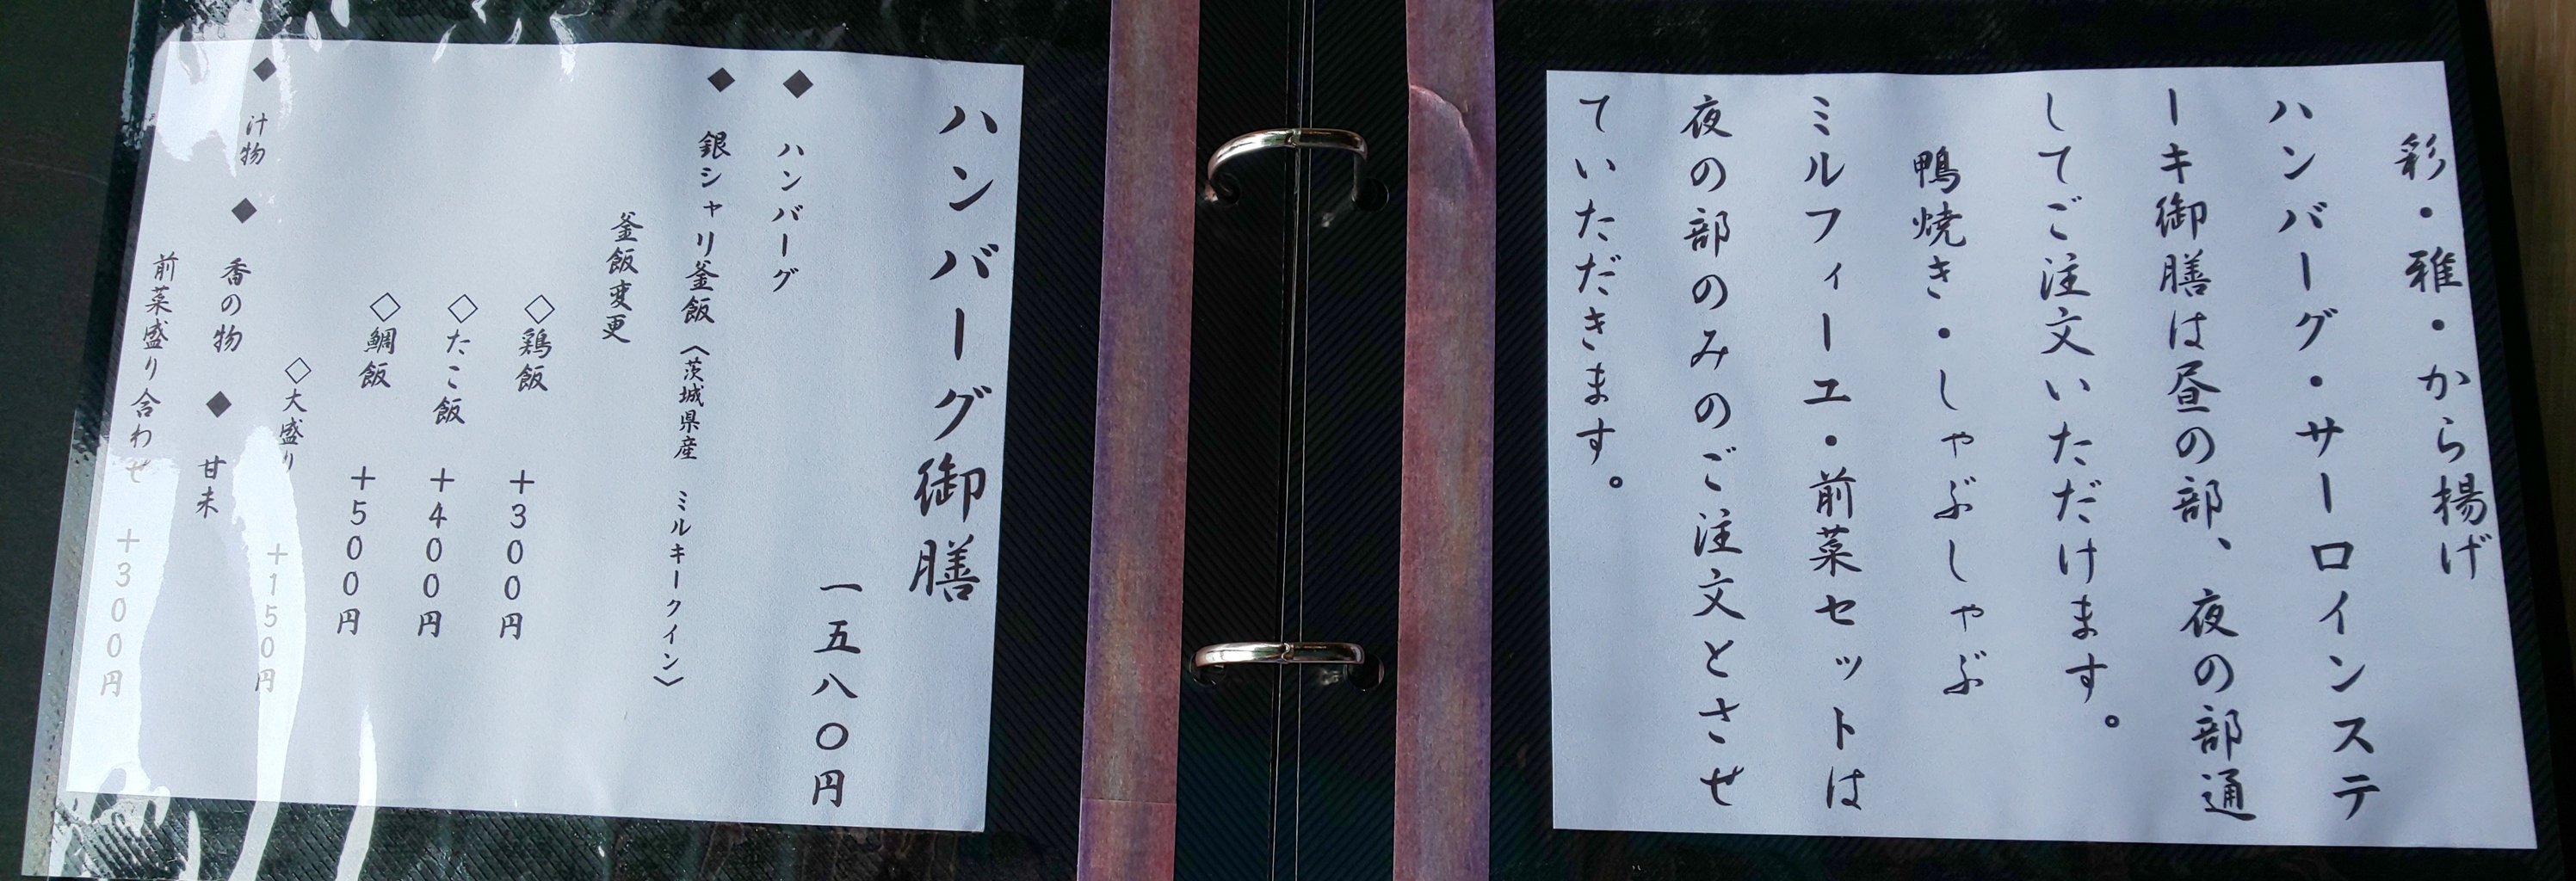 彩・雅・から揚げ
ハンバーグ・サーロインステ
ーキ御膳は昼の部、夜の部通
してご注文いただけます。
鴨焼き・しゃぶしゃぶ
ミルフィーユ・前菜セットは
夜の部のみのご注文とさせ
ていただきます。
ハンバーグ御膳
一五八〇円
◆ ハンバーグ
◆ 銀シャリ釜飯〈茨城県産 ミルキークイン〉
釜飯変更
◇鶏飯 +300円
◇たこ飯 +400円
◇鯛飯 +500円
◇大盛り +150円
◆ 汁物 ◆ 香の物 ◆ 甘未
前菜盛り合わせ +300円